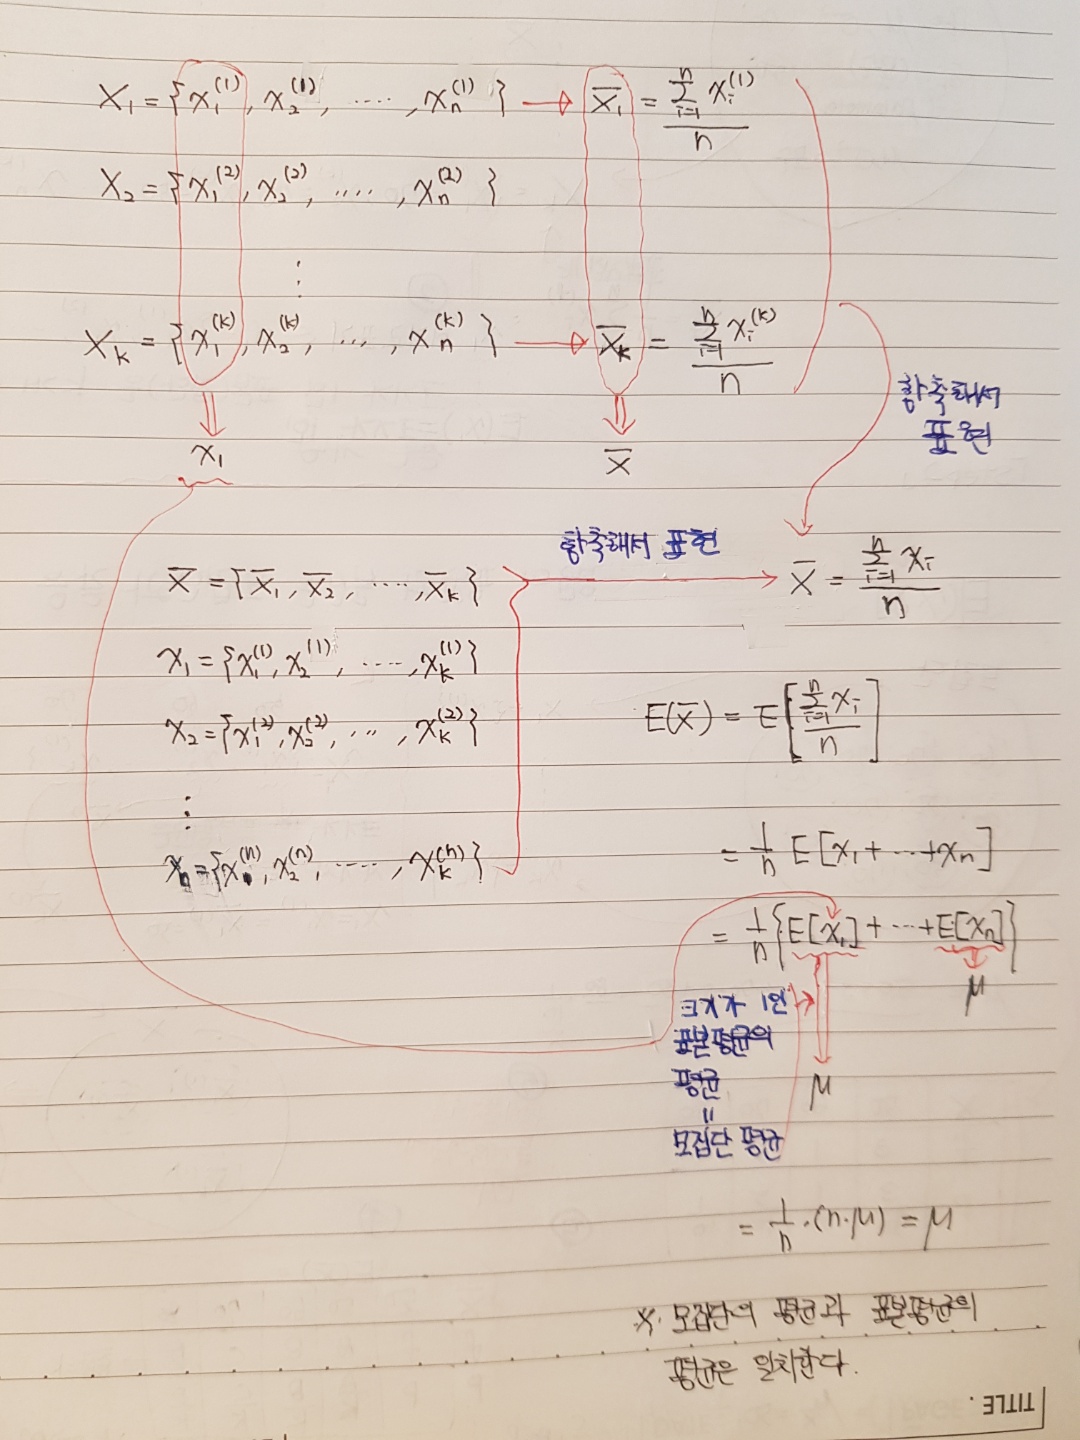 X₁ = {x₁⁽¹⁾, x₂⁽¹⁾, ....., xₙ⁽¹⁾} → X̄₁ = Σᵢ₌₁ⁿ xᵢ⁽¹⁾ / n
X₂ = {x₁⁽²⁾, x₂⁽²⁾, ...., xₙ⁽²⁾}
⋮
Xₖ = {x₁⁽ᵏ⁾, x₂⁽ᵏ⁾, ...., xₙ⁽ᵏ⁾} → X̄ₖ = Σᵢ₌₁ⁿ xᵢ⁽ᵏ⁾ / n
함축해서
표현
x₁
X̄
함축해서 표현
X̄ = {X̄₁, X̄₂, ...., X̄ₖ}
X̄ = Σᵢ₌₁ⁿ xᵢ / n
x₁ = {x₁⁽¹⁾, x₂⁽¹⁾, ....., xₖ⁽¹⁾}
x₂ = {x₁⁽²⁾, x₂⁽²⁾, ...., xₖ⁽²⁾}
⋮
xₙ = {x₁⁽ⁿ⁾, x₂⁽ⁿ⁾, ....., xₖ⁽ⁿ⁾}
E(X̄) = E[Σᵢ₌₁ⁿ xᵢ / n]
= 1/n E[x₁ + ... + xₙ]
= 1/n {E[x₁] + ... + E[xₙ]}
μ
크기가 1인
표본평균의
평균
=
모집단 평균
μ
= 1/n · (n·μ) = μ
※ 모집단의 평균과 표본평균의
평균은 일치한다.
TITLE .